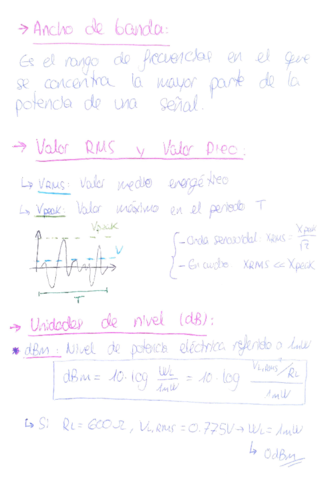 → Ancho de banda:
Es el rango de frecuencias en el que
se concentra la mayor parte de la
potencia de una señal.
→ Valor RMS y Valor Pico:
↳ VRMS: Valor medio energético
↳ Vpeak: Valor máximo en el periodo T
Vpeak
V
T
- Onda senoidal XRMS = Xpeak/√2
- En audio XRMS << Xpeak
→ Unidades de nivel (dB):
* dBm: Nivel de potencia eléctrica referido a 1mW
dBm = 10·log WL/1mW = 10·log VL,RMS²/RL/1mW
↳ Si RL = 600Ω, VL,RMS = 0.775V → WL = 1mW
↳ 0dBm